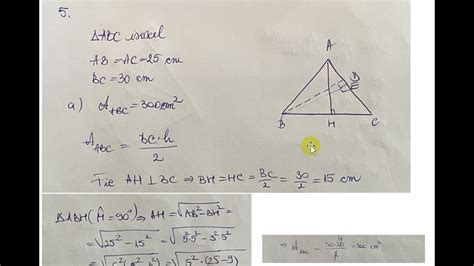 5.
ΔABC isoscel
AB = AC = 25 cm
BC = 30 cm
a) A_ABC = 300 cm²
A_ABC = BC·h / 2
Fie AH ⊥ BC ⇒ BH = HC = BC/2 = 30/2 = 15 cm
A
D
B
H
C
ΔABH (Ĥ = 90°) ⇒ AH = √(AB² − BH²) =
= √(25² − 15²) = √(5²·5² − 3²·5²)
= √(5²(5²−3²)) = √(5²·(25−9))
⇒ A_ABC = = 300 cm²